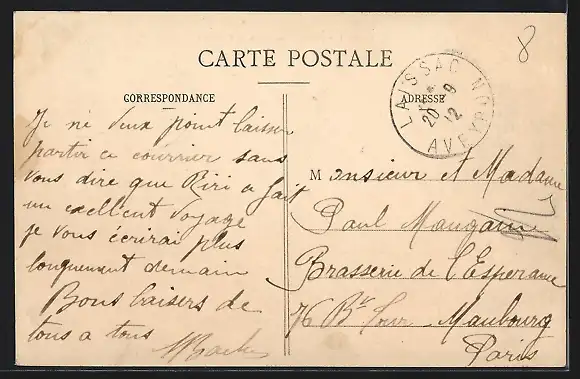 8
CARTE POSTALE
CORRESPONDANCE
ADRESSE
LAISSAC AVEYRON
20 - 9
12
Je ne veux point laisser
partir ce courrier sans
vous dire que Riri a fait
un exellent voyage
je vous écrirai plus
longuement demain
Bons baisers de
tous a tous
Monsieur et Madame
Paul Maugain
Brasserie de l'Esperance
76 Bd Tour Maubourg
Paris